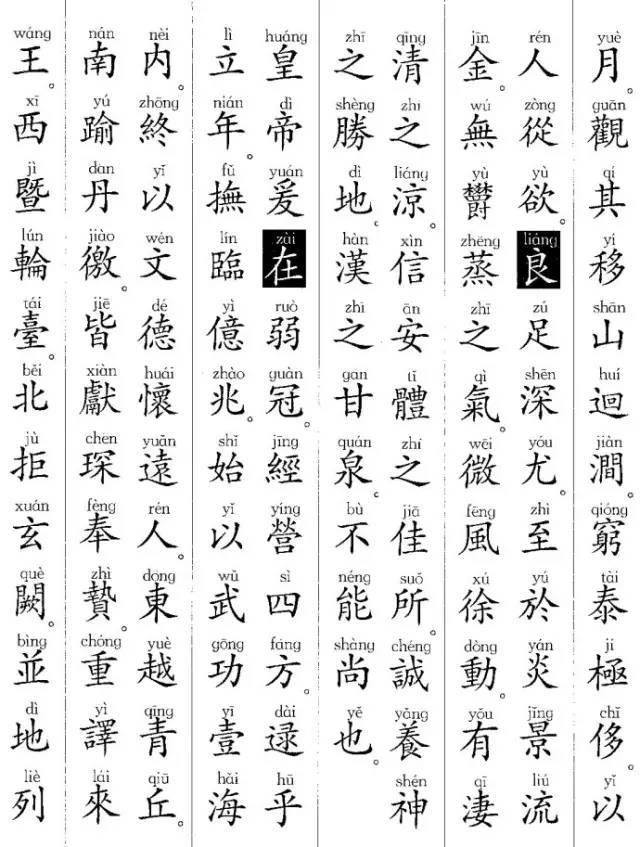 yuè guān qí yí shān huí jiàn qióng tài jí chǐ yǐ
月觀其移山迴澗窮泰極侈以
rén zòng yù liáng zú shēn yóu zhì yú yán jǐng liú
人從欲。良足深尤。至於炎景流
jīn wú yù zhēng zhī qì wēi fēng xú dòng yǒu qī
金。無鬱蒸之氣。微風徐動。有淒
qīng zhī liáng xìn ān tǐ zhī jiā suǒ chéng yǎng shén
清之涼。信安體之佳所。誠養神
zhī shèng dì hàn zhī gān quán bù néng shàng yě
之勝地。漢之甘泉。不能尚也。
huáng dì yuán zài ruò guàn jīng yíng sì fāng dài hū
皇帝爰在弱冠。經營四方。逮乎
lì nián fǔ lín yì zhào shǐ yǐ wǔ gōng yī hǎi
立年。撫臨億兆。始以武功壹海
nèi zhōng yǐ wén dé huái yuǎn rén dōng yuè qīng qiū
內。終以文德懷遠人。東越青丘。
nán yú dān jiào jiē xiàn chēn fèng zhì chóng yì lái
南踰丹徼。皆獻琛奉贄重譯來
wáng xī jì lún tái běi jù xuán què bìng dì liè
王。西暨輪臺。北拒玄闕。並地列